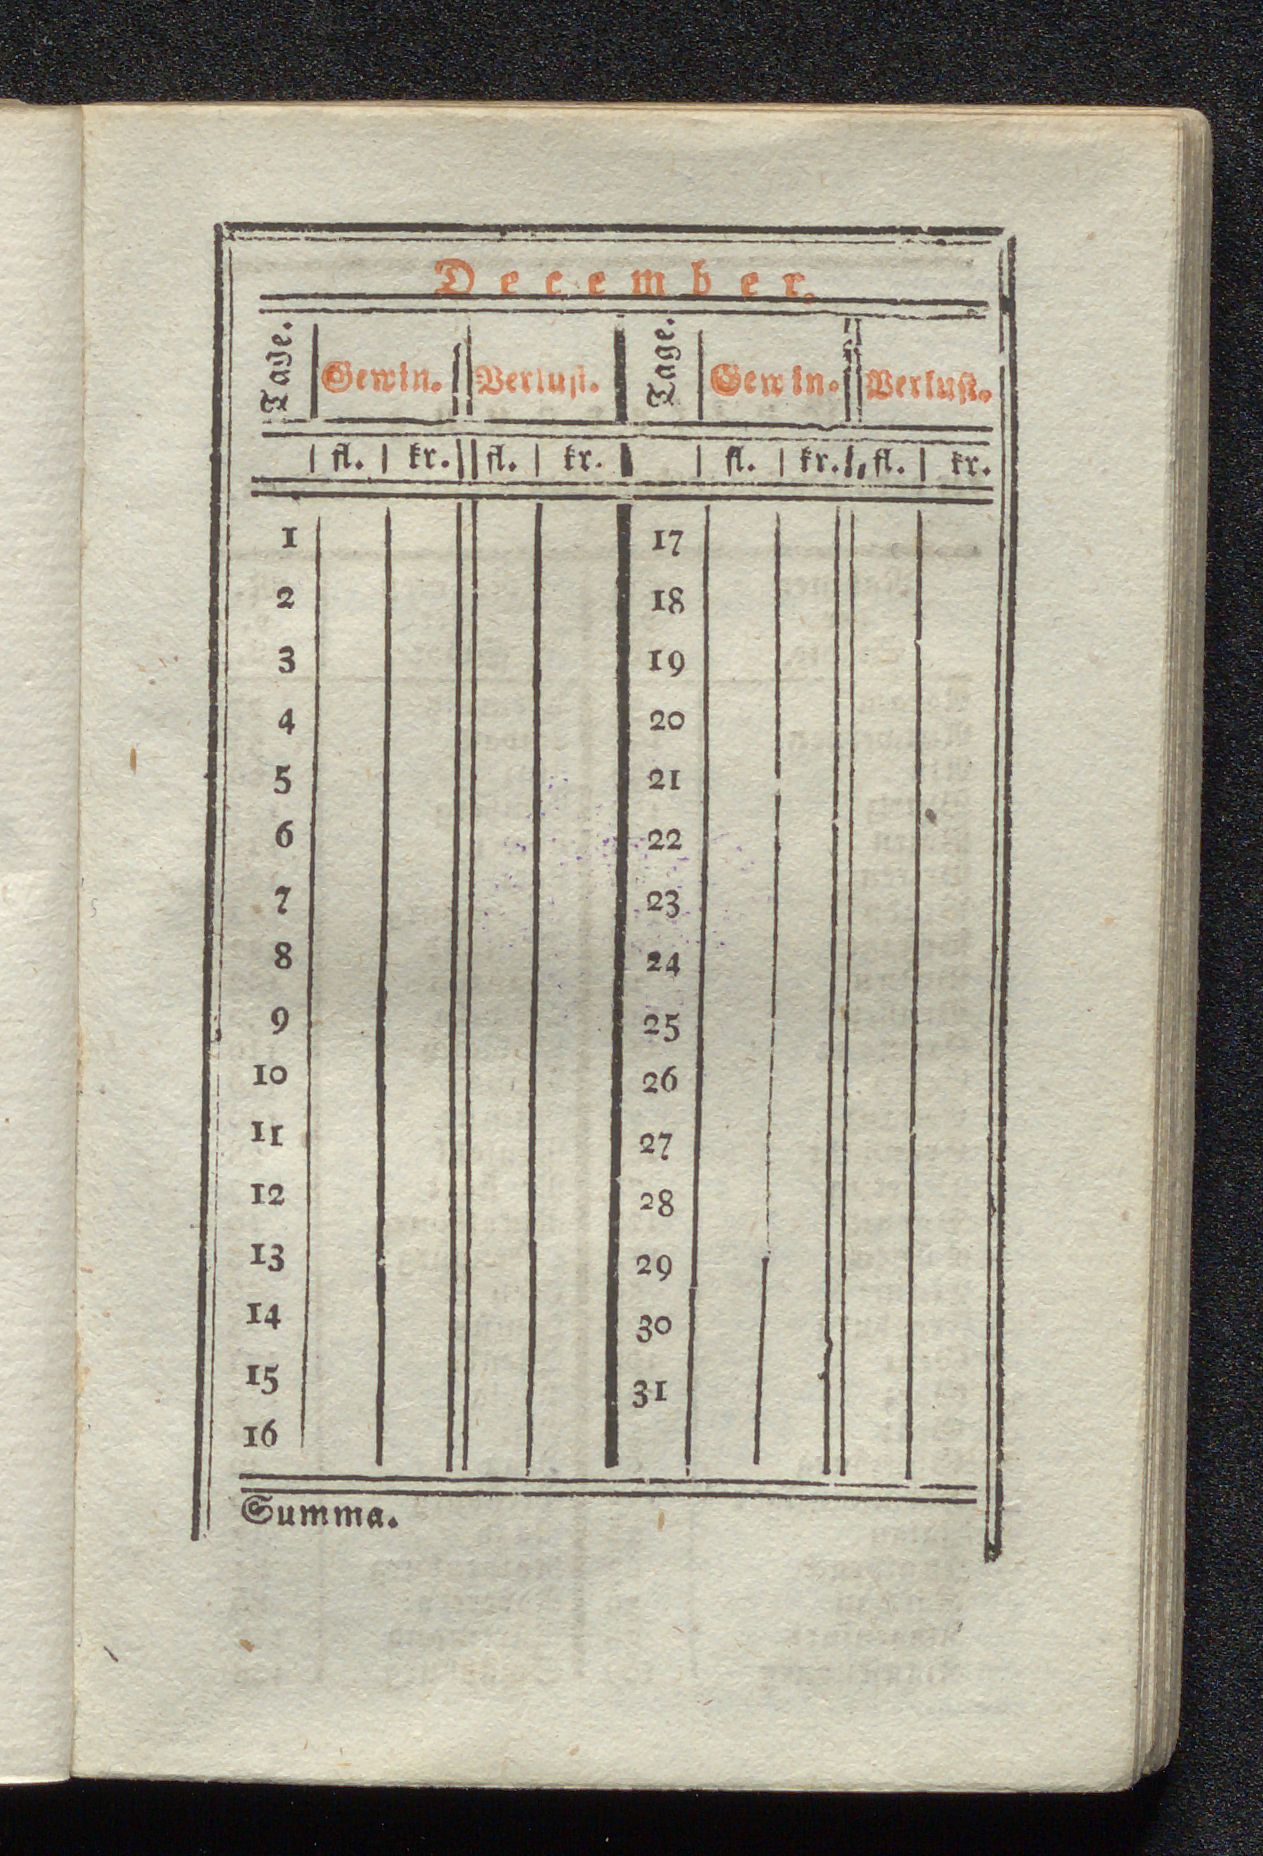 December.
Tage. Gewin. Verlust. Tage. Gewin. Verlust.
fl. kr. fl. kr. fl. kr. fl. kr.
1 17
2 18
3 19
4 20
5 21
6 22
7 23
8 24
9 25
10 26
11 27
12 28
13 29
14 30
15 31
16
Summa.